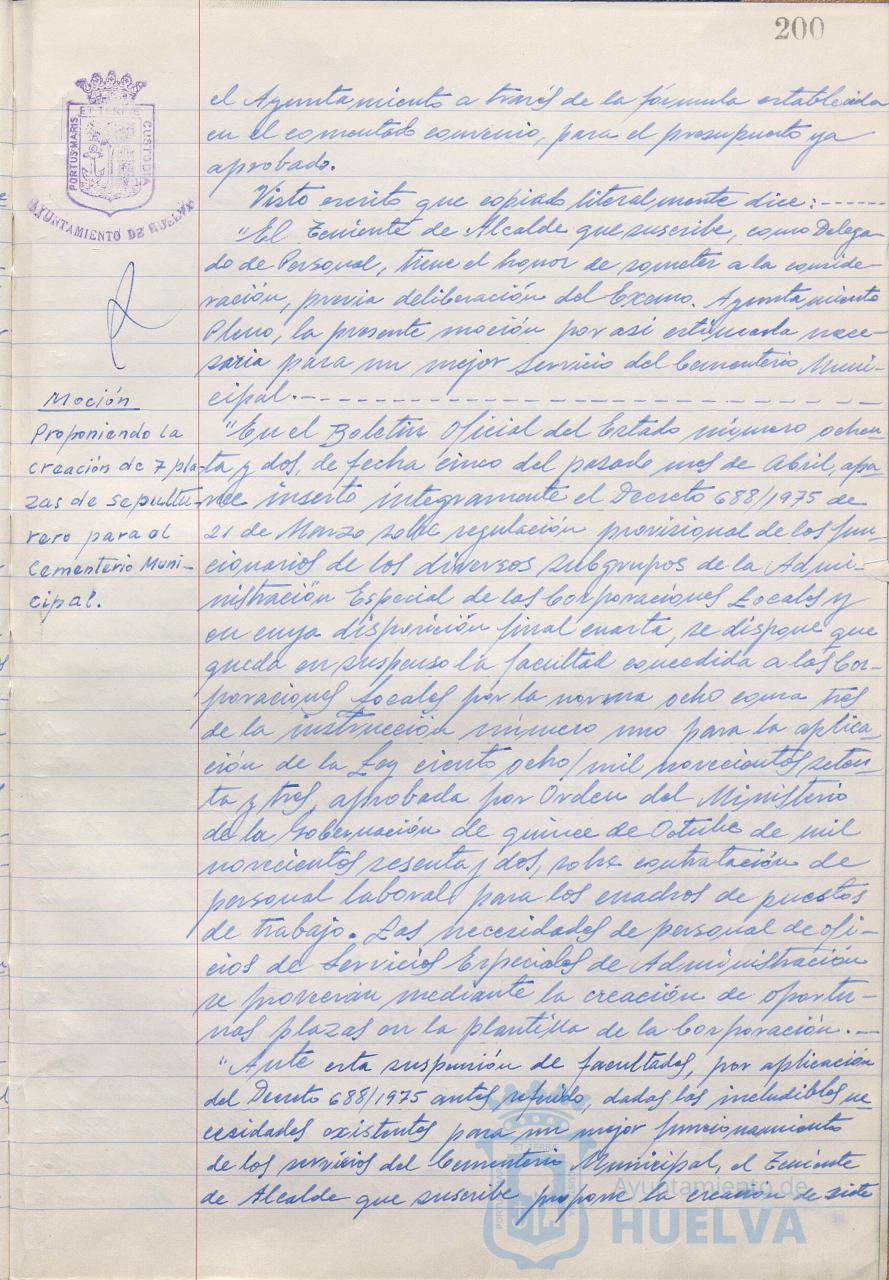 200
PORTUS MARIS
CUSTODIA
AYUNTAMIENTO DE HUELVA
el Ayuntamiento a través de la fórmula establecida
en el comentado convenio, para el presupuesto ya
aprobado.
Visto escrito que copiado literalmente dice:------
"El Teniente de Alcalde que suscribe, como Delega-
do de Personal, tiene el honor de someter a la conside-
ración, previa deliberación del Excmo. Ayuntamiento
Pleno, la presente moción por así estimarla nece-
saria para un mejor servicio del Cementerio Muni-
cipal.-
Moción
Proponiendo la
creación de 7 pla-
zas de sepultu-
rero para el
Cementerio Muni-
cipal.
"En el Boletín Oficial del Estado número ochen-
ta y dos, de fecha cinco del pasado mes de Abril, apa-
rece inserto íntegramente el Decreto 688/1975 de
21 de Marzo sobre regulación provisional de los fun-
cionarios de los diversos subgrupos de la Admi-
nistración Especial de las Corporaciones Locales y
en cuya disposición final cuarta, se dispone que
queda en suspenso la facultad concedida a las Cor-
poraciones Locales por la norma ocho coma tres
de la instrucción número uno para la aplica-
ción de la Ley ciento ocho/mil novecientos seten-
ta y tres, aprobada por Orden del Ministerio
de la Gobernación de quince de Octubre de mil
novecientos sesenta y dos, sobre contratación de
personal laboral para los cuadros de puestos
de trabajo. Las necesidades de personal de ofi-
cios de Servicios Especiales de Administración
se proveerán mediante la creación de oportu-
nas plazas en la plantilla de la Corporación.-
"Ante esta suspensión de facultades, por aplicación
del Decreto 688/1975 antes referido, dadas las ineludibles ne-
cesidades existentes para un mejor funcionamiento
de los servicios del Cementerio Municipal, el Teniente
de Alcalde que suscribe propone la creación de siete
Ayuntamiento de
HUELVA